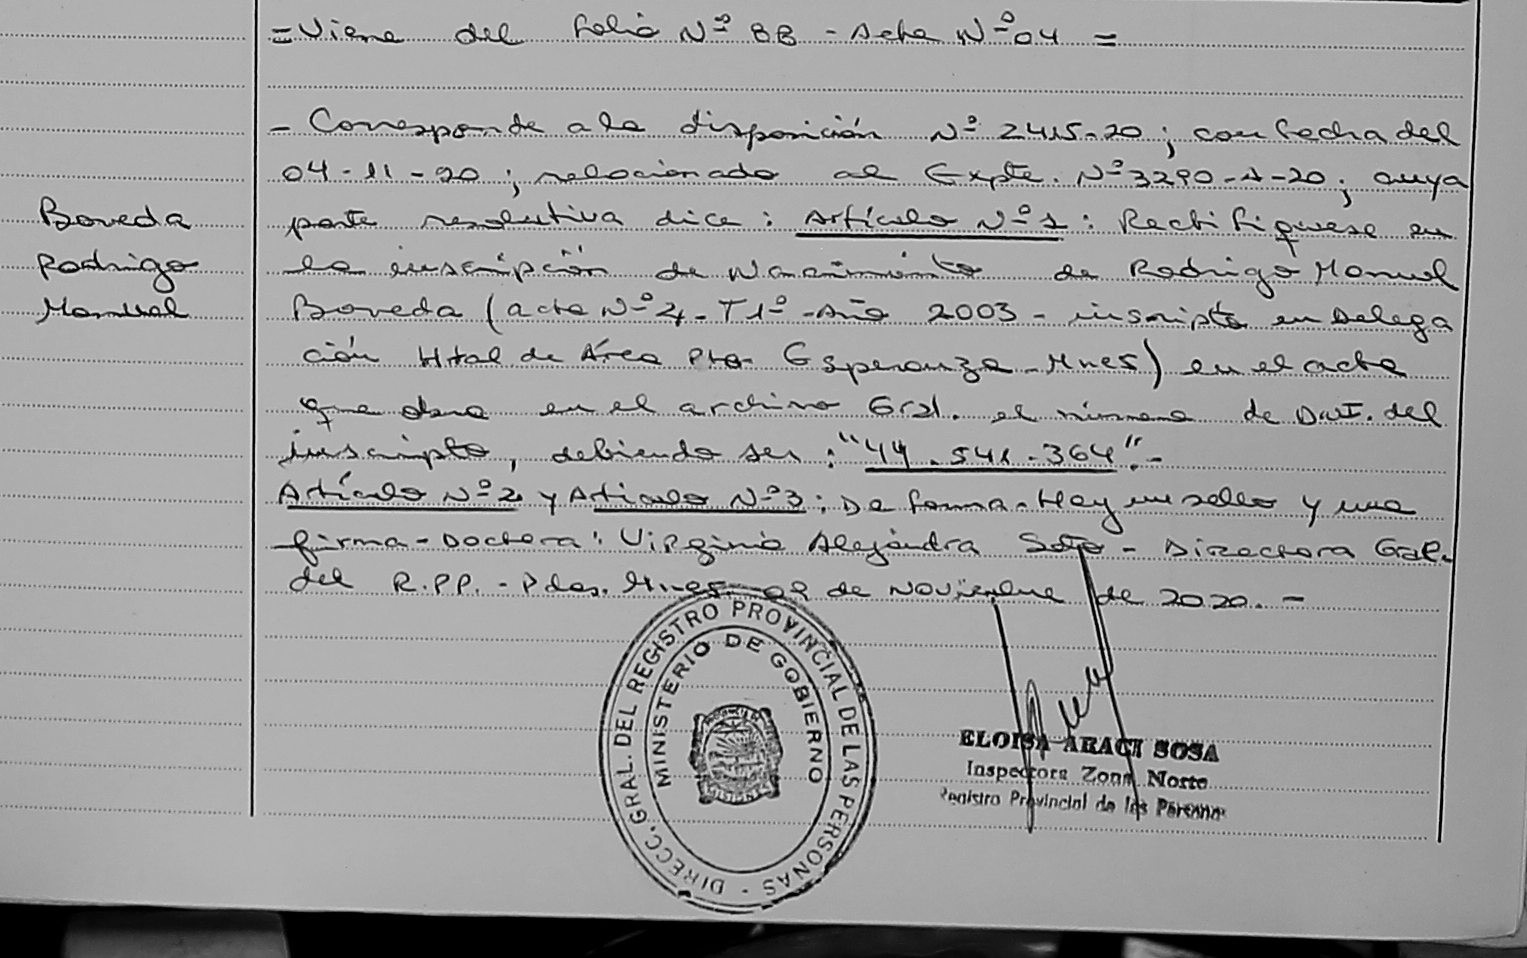 =Viene del folio Nº 88 - Acta Nº 04 =
- Corresponde a la disposición Nº 2415-20; con fecha del
04-11-20; relacionado al Expte. Nº 3290-A-20; cuya
parte resolutiva dice: Artículo Nº 1: Rectifiquese en
Boveda
la inscripción de Nacimiento de Rodrigo Manuel
Rodrigo
Boveda (acta Nº 4 - T1º - Año 2003 - inscripta en Delega
Manuel
ción Htal de Área Pto. Esperanza - Mnes) en el acta
que obra en el archivo Gral. el número de D.N.I. del
inscripto, debiendo ser: "44.541.364".-
Artículo Nº 2 y Articulo Nº 3: De forma. Hay un sello y una
firma - Doctora: Virginia Alejandra Soto - Directora Gral.
del R.P.P. - Pdas. Mnes. 09 de Noviembre de 2020. -
DIRECC. GRAL. DEL REGISTRO PROVINCIAL DE LAS PERSONAS -
MINISTERIO DE GOBIERNO
ELOISA ARACI SOSA
Inspectora Zona Norte
Registro Provincial de las Personas